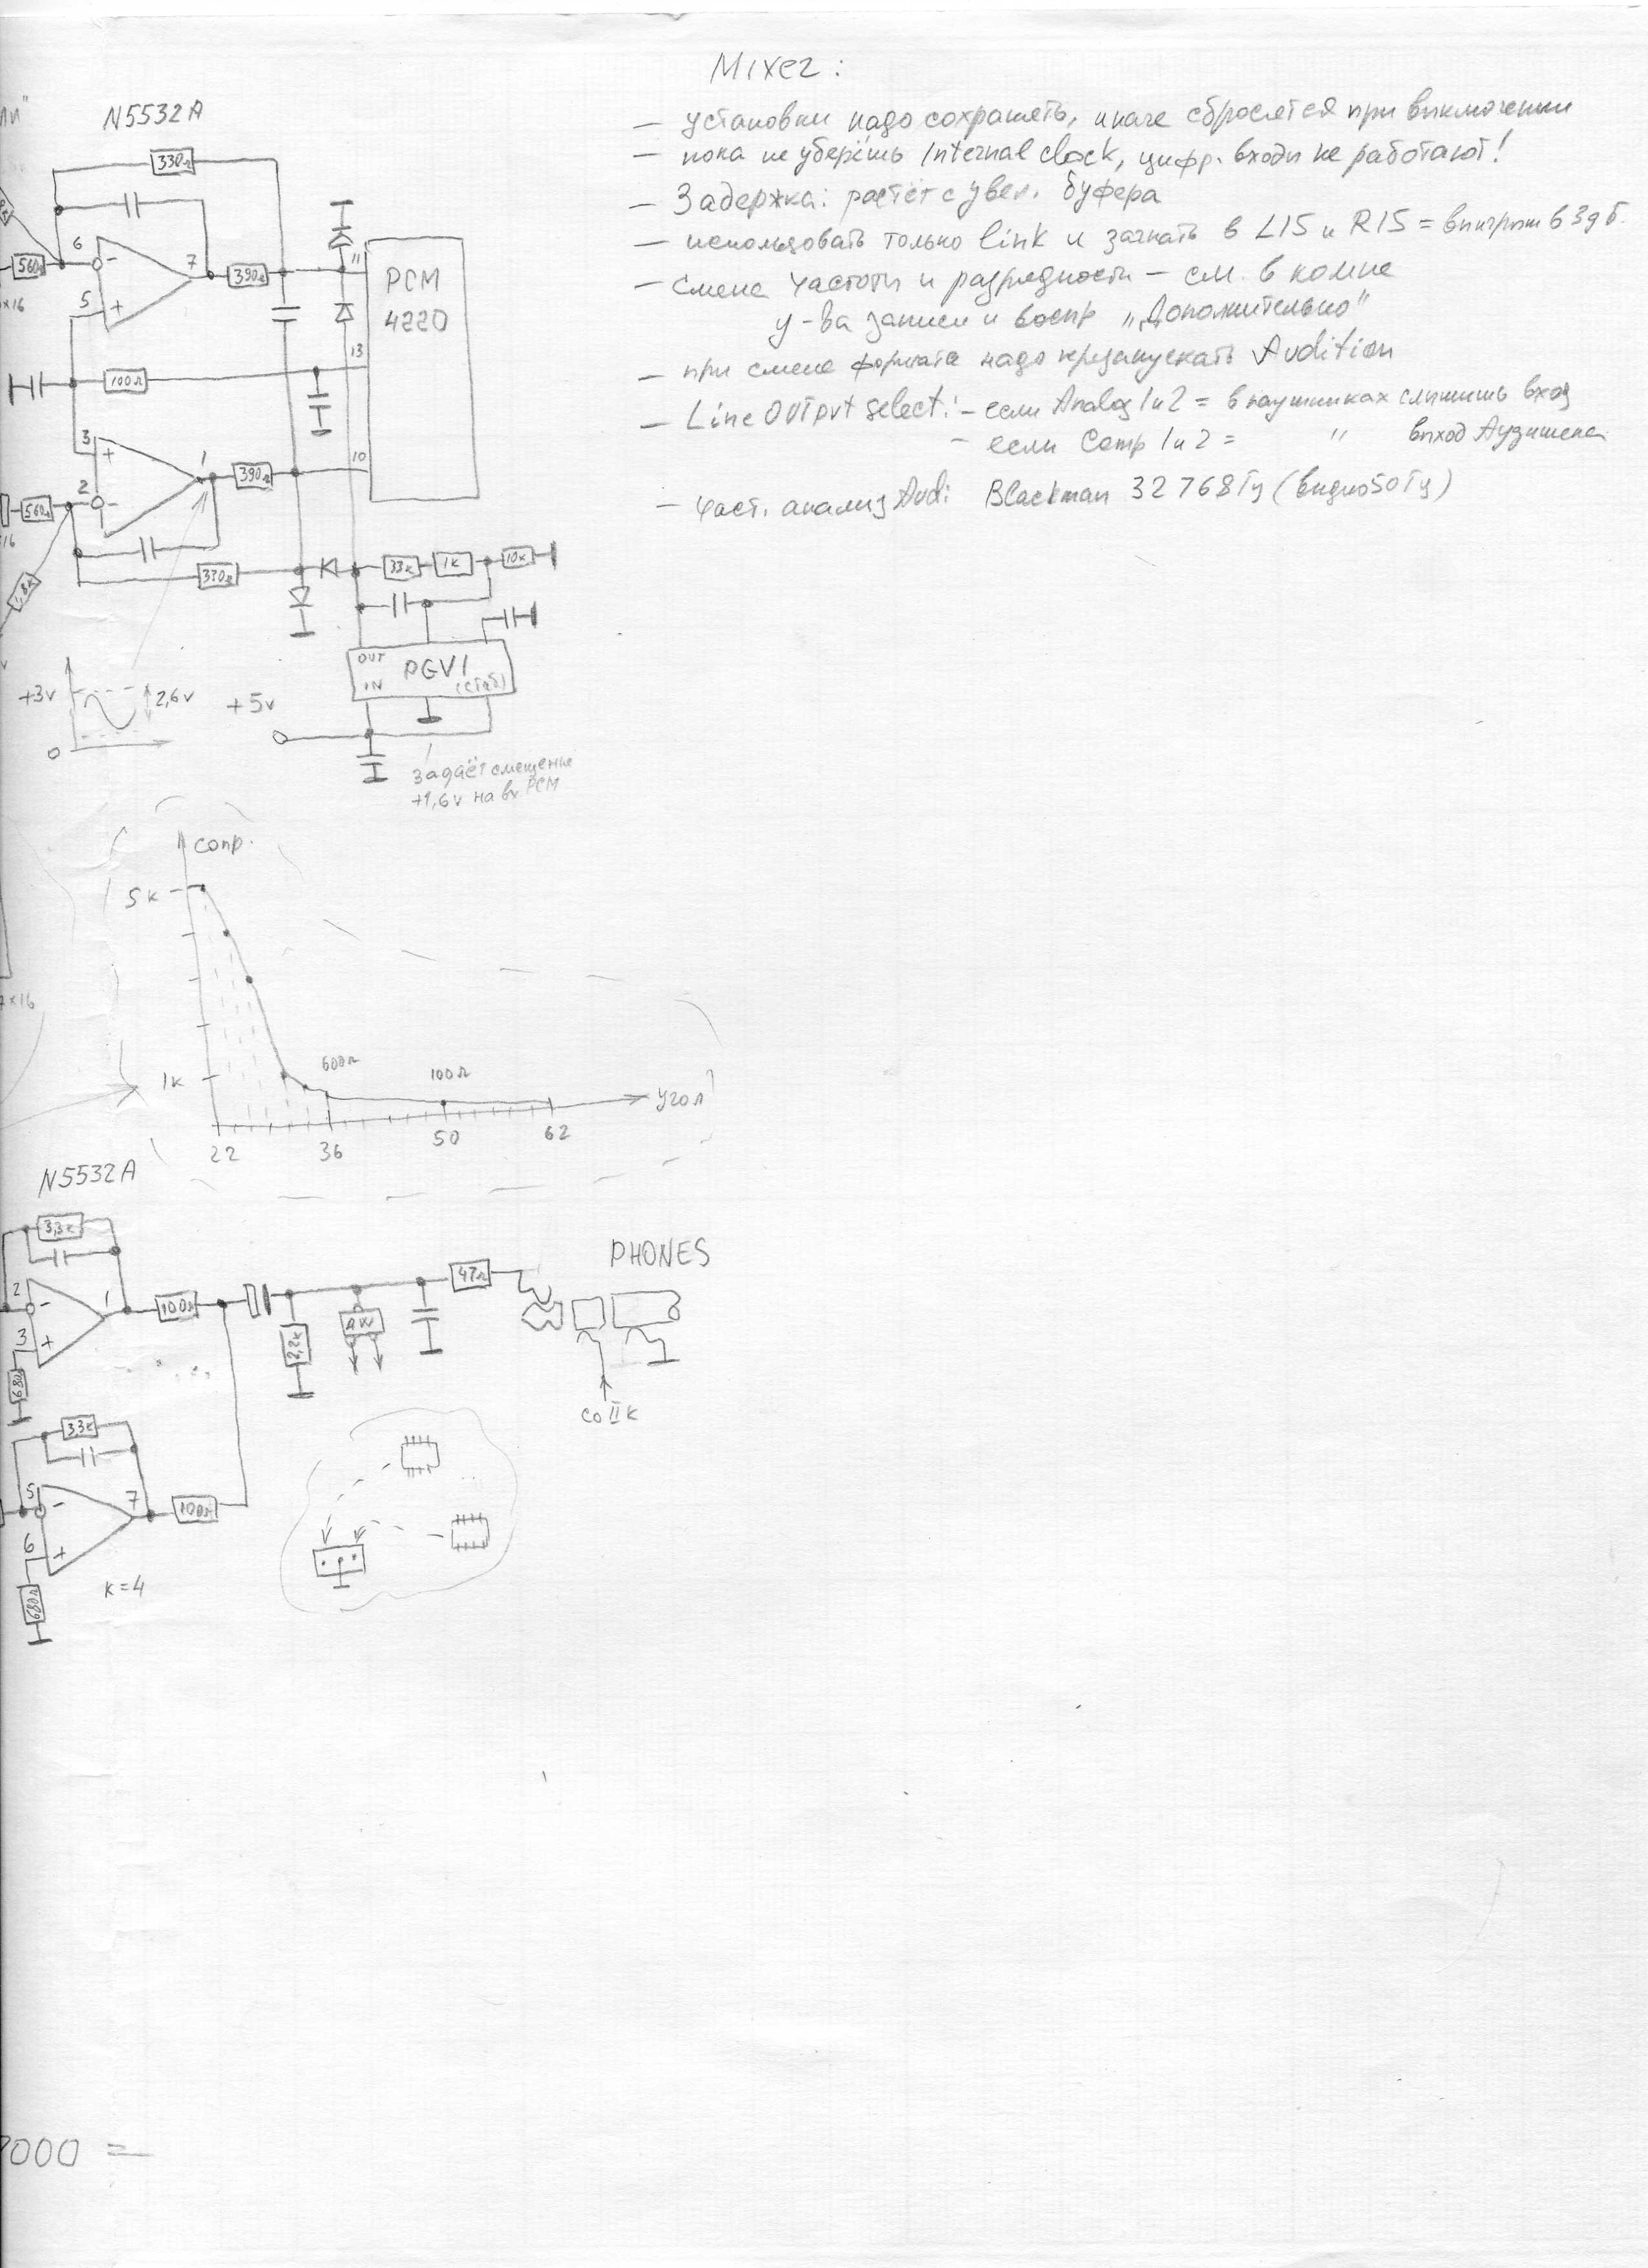 Mixer:
— установки надо сохранять, иначе сбросятся при выключении
— пока не уберёшь Internal clock, цифр. входы не работают!
— Задержка: растёт с увел. буфера
— использовать только link и загнать в L15 и R15 = выигрыш в 3дб.
— смена частоты и разрядности — см. в компе
у-ва записи и воспр „Дополнительно"
— при смене формата надо презапускать Audition
— Line Output select: — если Analog 1и2 = в наушниках слышишь вход
— если Comp 1и2 = " выход Аудишена
— част. анализ Audi Blackman 32768Гц (видно 50Гц)
N5532A
330Ω
6
7
5
+
-
560Ω
390Ω
11
PCM
4220
×16
13
100Ω
3
+
1
390Ω
10
2
-
560Ω
16
1,8к
330Ω
33к
1к
10к
OUT
IN
PGVI
(стаб)
+3v
2,6v
0
+5v
Задаёт смещение
+1,6v на вх PCM
сопр.
5к
×16
1к
600Ω
100Ω
угол
22
36
50
62
N5532A
3,3к
2
-
1
3
+
680
100Ω
47Ω
PHONES
2,2к
со II к
3,3к
5
-
7
6
+
680Ω
100Ω
к=4
000 =